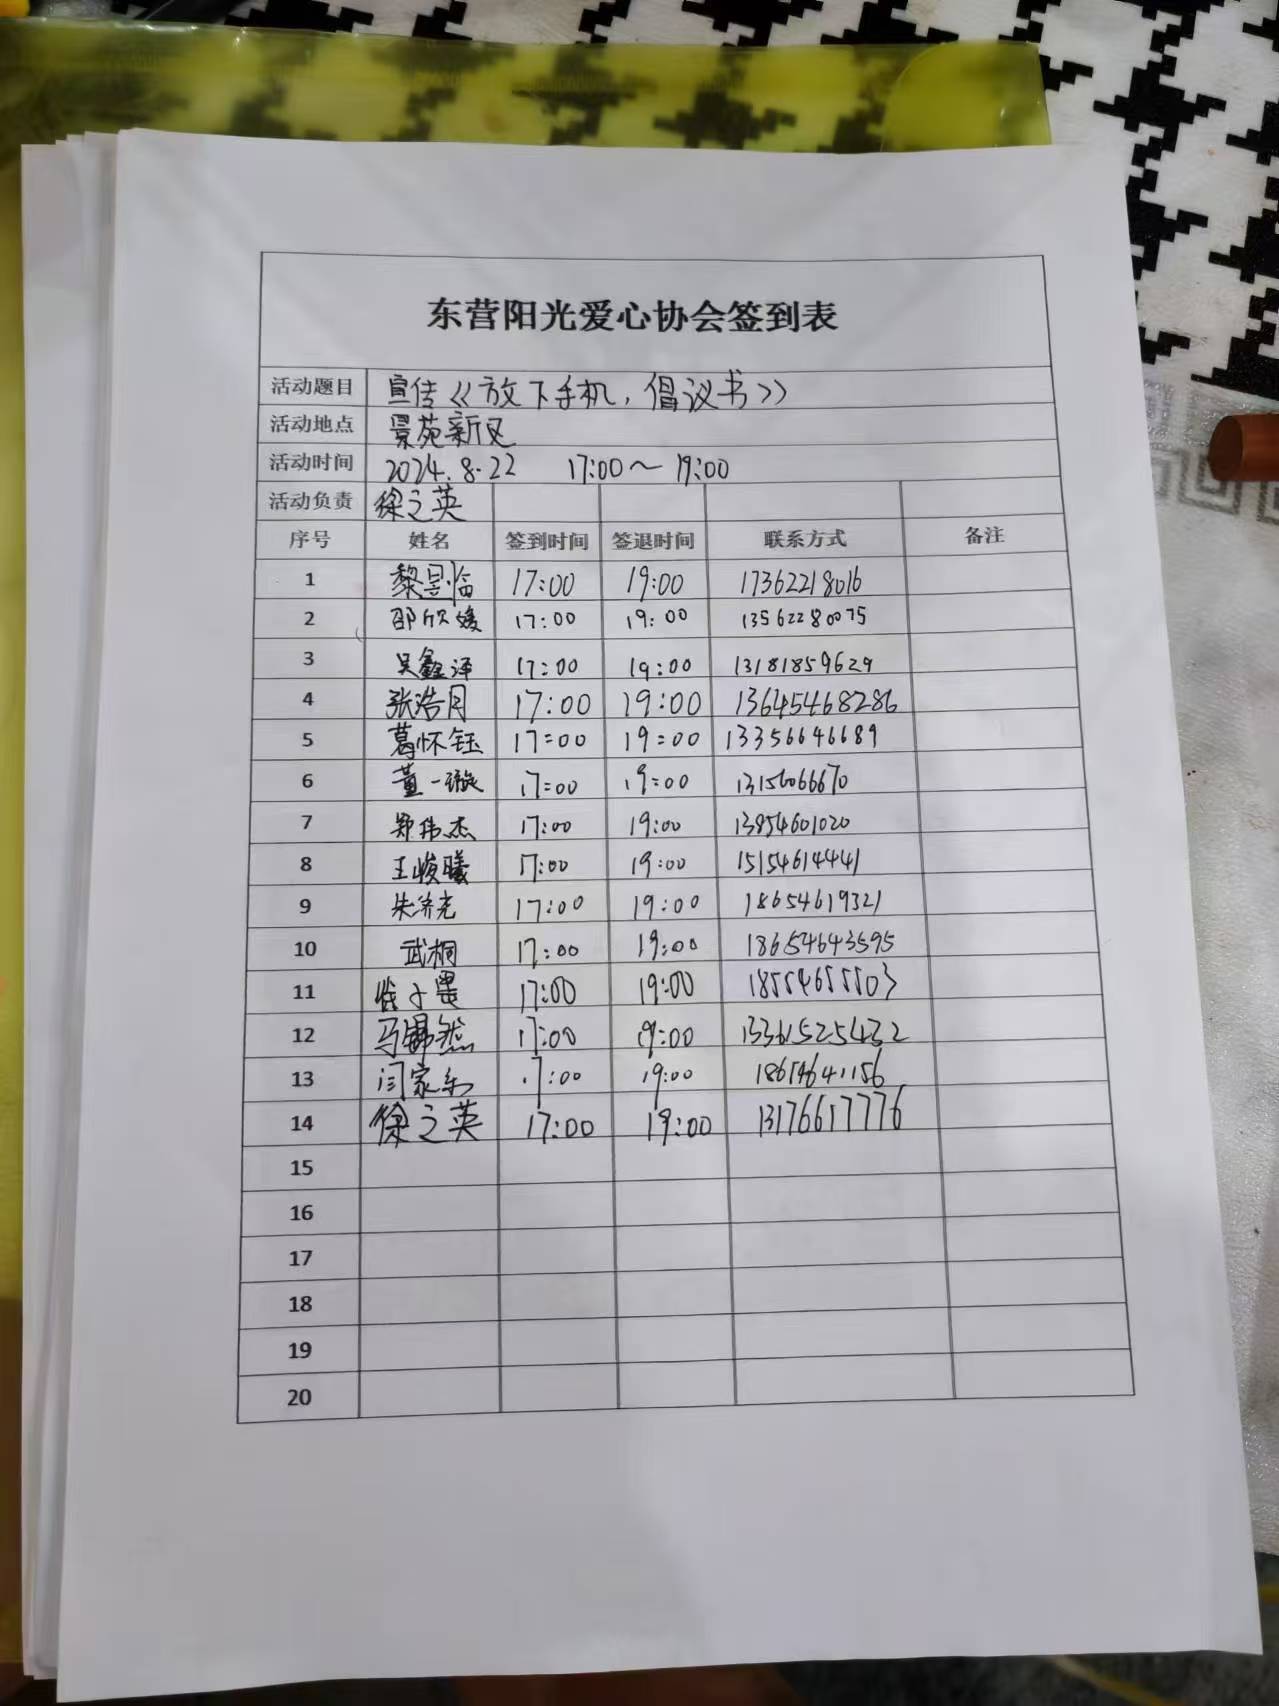 东营阳光爱心协会签到表
活动题目 宣传《放下手机,倡议书》
活动地点 景苑新区
活动时间 2024.8.22 17:00～19:00
活动负责 徐之英
序号 姓名 签到时间 签退时间 联系方式 备注
1 黎昱临 17:00 19:00 17362218016
2 邵欣媛 17:00 19:00 13562280075
3 吴鑫泽 17:00 19:00 13181859629
4 张浩月 17:00 19:00 13645468286
5 葛怀钰 17:00 19:00 13356646689
6 董一璇 17:00 19:00 13156066670
7 郑伟杰 17:00 19:00 13854601020
8 王峻曦 17:00 19:00 15154614441
9 朱济尧 17:00 19:00 18654619321
10 武桐 17:00 19:00 18654643595
11 17:00 19:00 18554655503
12 马锡然 17:00 19:00 13361525432
13 闫家乐 17:00 19:00 18654641156
14 徐之英 17:00 19:00 13176617776
15
16
17
18
19
20